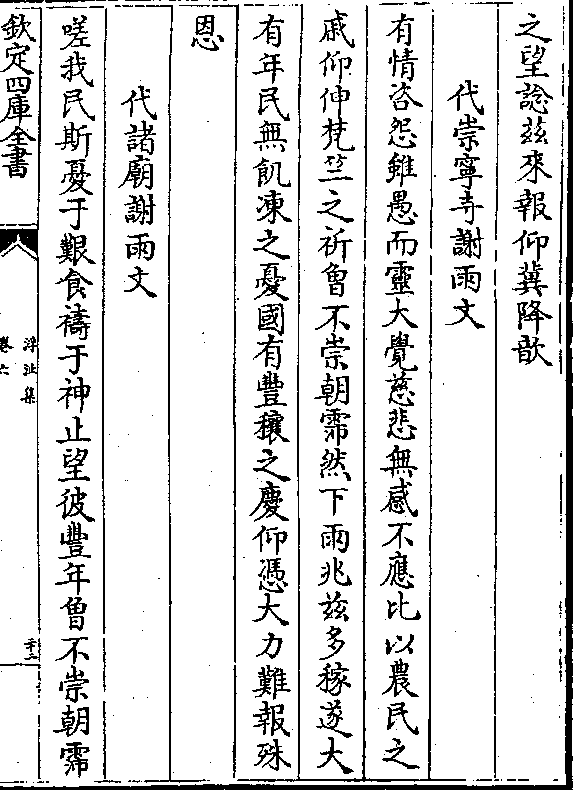 之望諗兹來報仰冀降歆
代崇寧寺謝雨文
有情咨怨雖愚而靈大覺慈悲無感不應比以農民之
戚仰伸梵竺之祈曾不崇朝霈然下雨兆兹多稼遂大
有年民無飢凍之憂國有豐穰之慶仰憑大力難報殊
恩
代諸廟謝雨文
嗟我民斯憂于艱食禱于神止望彼豐年曾不崇朝霈
欽定四庫全書
浮沚集
卷六
二十二